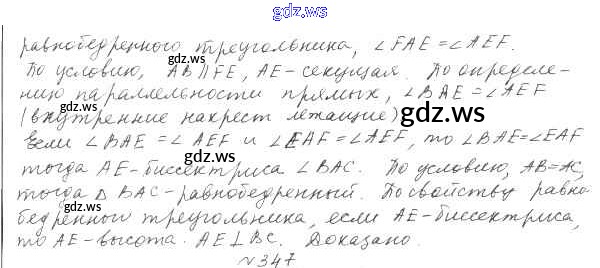 gdz.ws
равнобедренного треугольника, ∠FAE=∠AEF.
По условию, AB∥FE, AE-секущая. По определе-
нию параллельности прямых, ∠BAE=∠AEF
(внутренние накрест лежащие)
gdz.ws
Если ∠BAE=∠AEF и ∠EAF=∠AEF, то ∠BAE=∠EAF
тогда AE-биссектриса ∠BAC. По условию, AB=AC,
тогда △BAC-равнобедренный. По свойству равно
бедренного треугольника, если AE-биссектриса,
то AE-высота. AE⊥BC. Доказано.
gdz.ws
№347